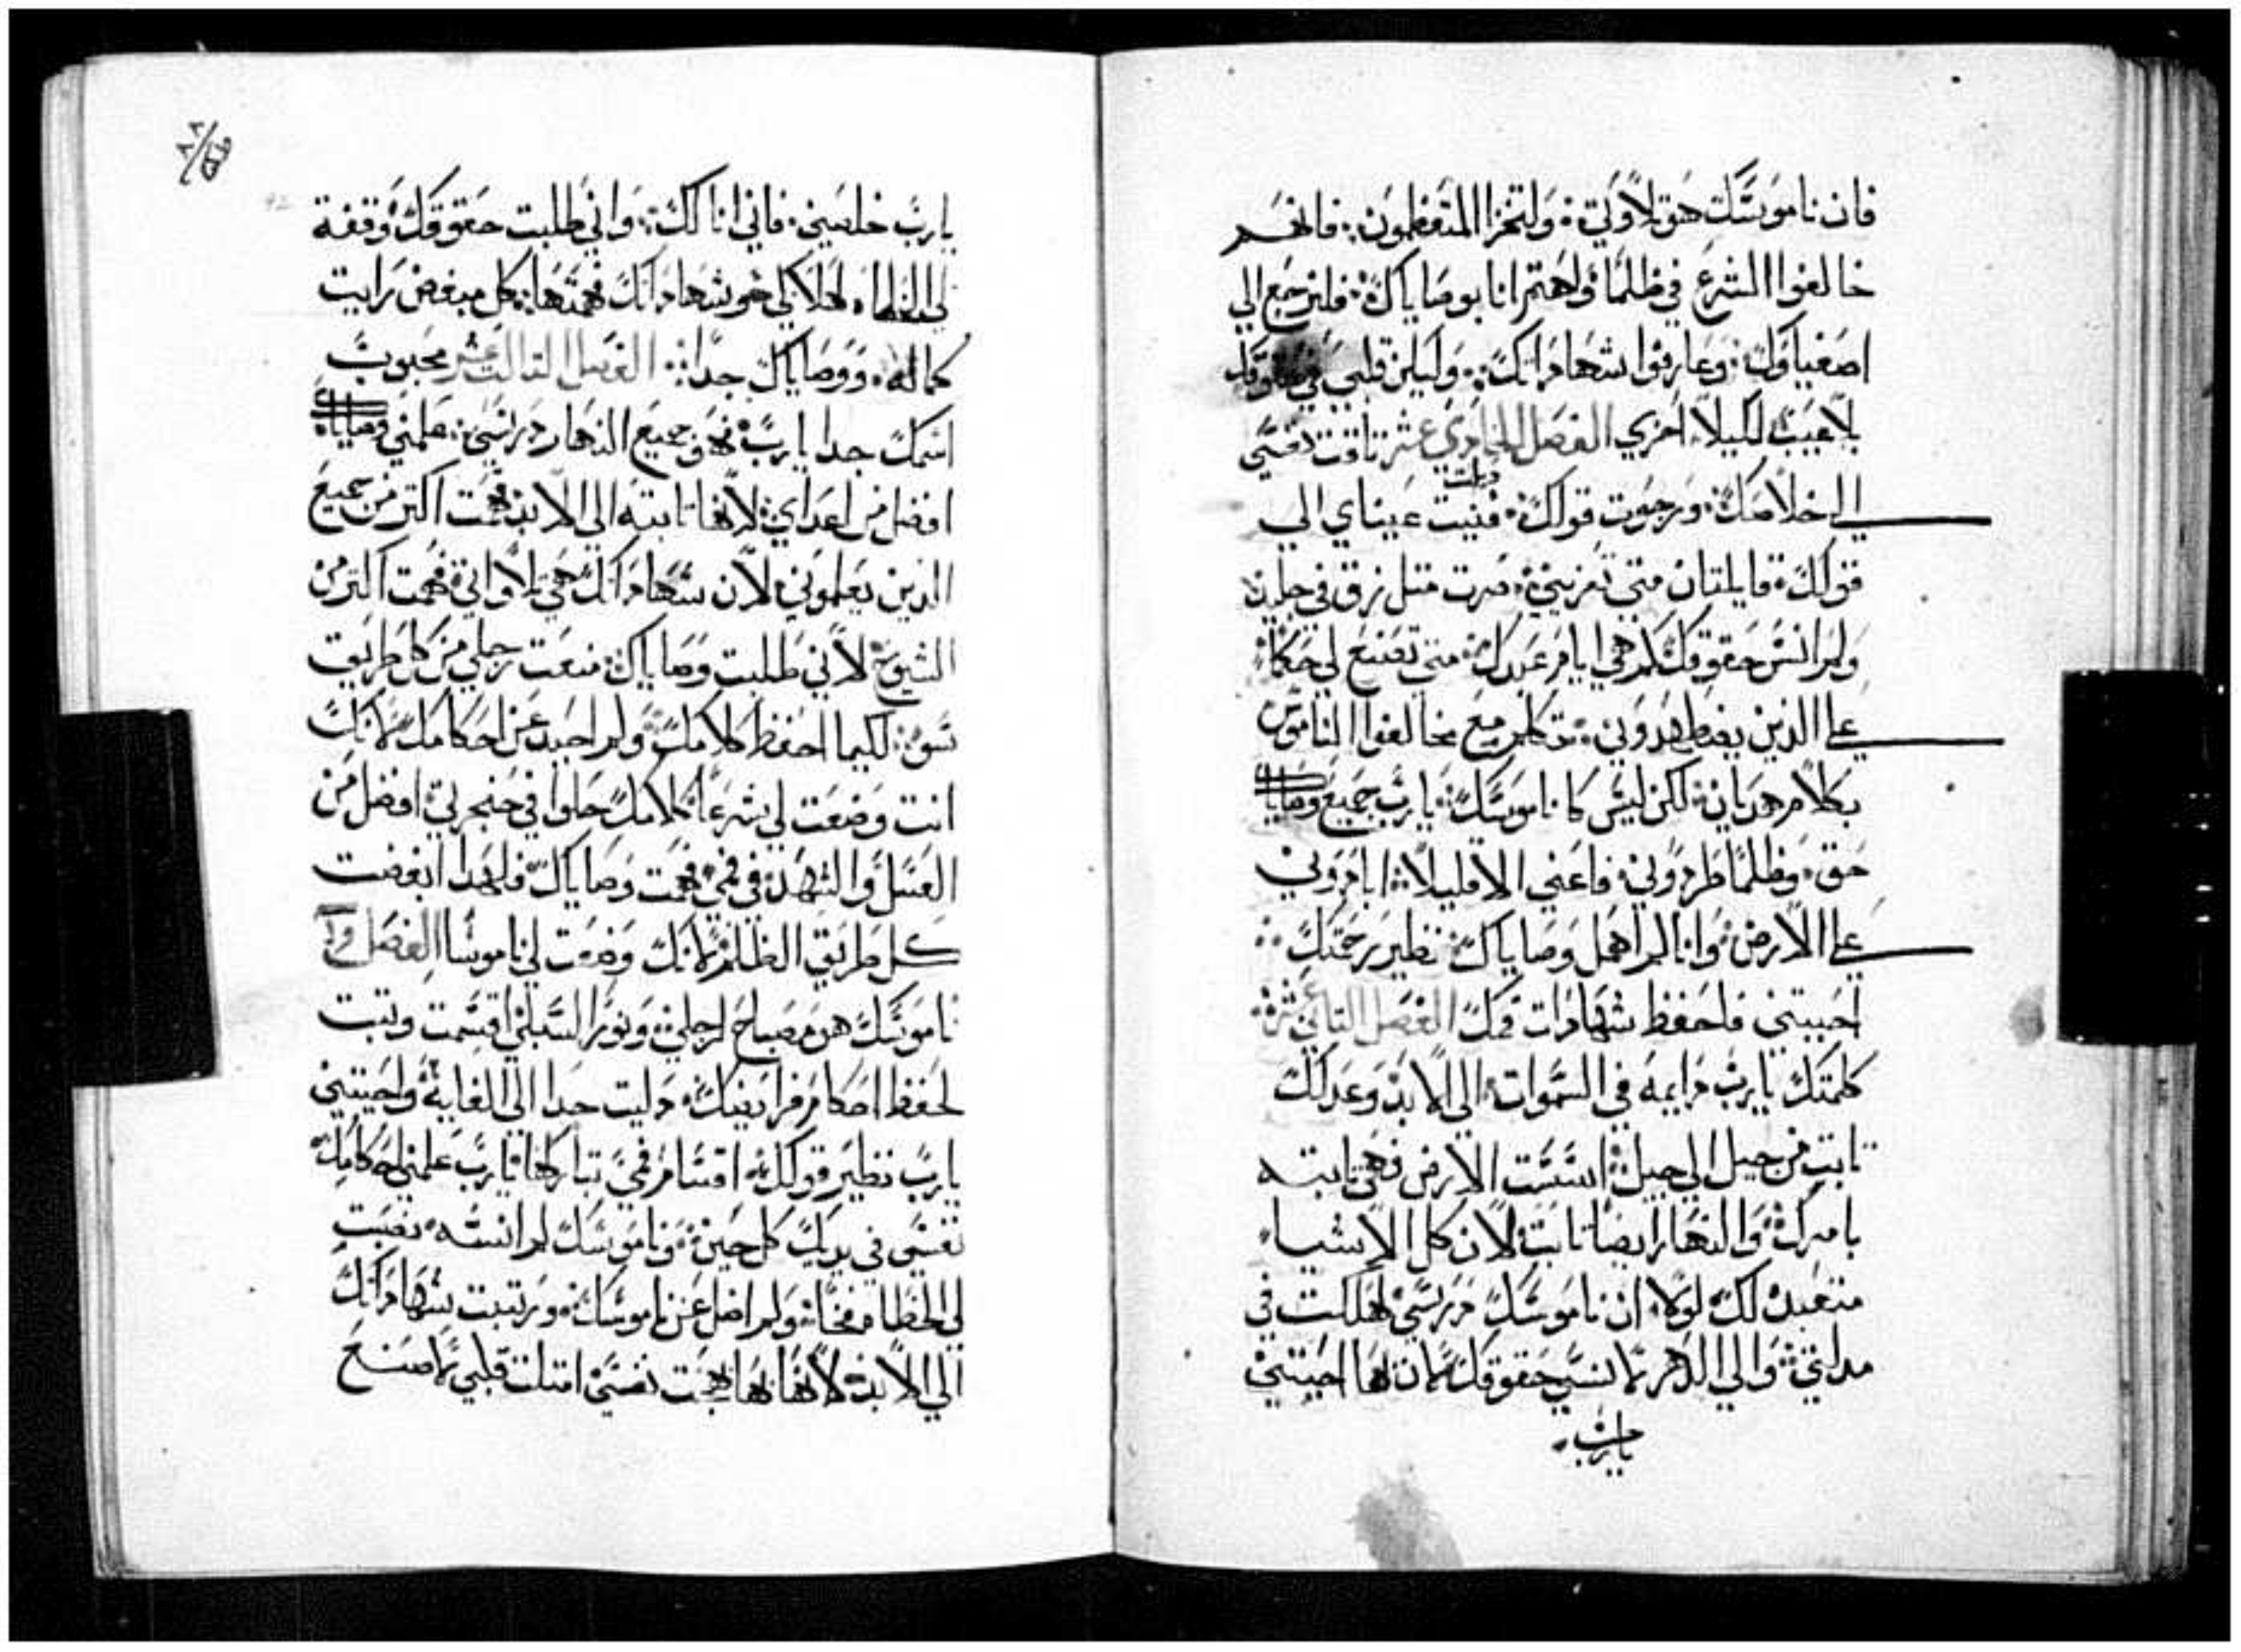 فان ناموسك هو تلاوتي وليخزا المتعظمون فانهم
خالفوا الشرع في ظلما واهتم انا بوصاياك فليرجع الي
اصفياوك وعارفوا شهاداتك وليكن قلبي في حقوقك
بلا عيب لكيلا اخزي الفصل الحادي عشر تاقت نفسي
الي خلاصك ورجوت قولك فنيت عيناي الي
قولك قايلتان متي تعزيني صرت متل زق في جليد
ولم انس حقوقك كم هي ايام عبدك متي تصنع لي حكما
علي الذين يضطهدوني تكلم مع مخالفوا الناموس
بكلام هديان لكن ليس كا ناموسك يا رب جميع وصاياك
حق وظلما طردوني فاعني الا قليلا ابادوني
علي الارض وانا لم اهمل وصاياك نظير رحمتك
احييتني فاحفظ شهادات فمك الفصل التاني عشر
كلمتك يا رب دايمه في السموات الي الابد وعدلك
تابت من جيل الي جيل اسست الارض فهي تابته
بامرك والنهار ايضا تابت لان كل الاشيا
متعبده لك لولا ان ناموسك درسي لهلكت في
مدلتي والي الدهر لا انسي حقوقك لان بها احييتني
يا رب
يا رب خلصني فاني انا لك واني طلبت حقوقك وقفة
لي الخطاه لهلاكي نحو شهاداتك فهمتها كل منقض رايت
كماله ووصاياك جدا الفصل التالت عشر محبوب
اسمك جدا يا رب فهو جميع النهار درسي علمني وصاياك
افضل من اعداي لانها تابته الي الابد فهمت اكتر من جميع
الدين يعلموني لان شهاداتك هي تلاواتي فهمت اكتر من
الشيوخ لاني طلبت وصاياك منعت رجلي من كل طريق
سو لكيما احفظ كلامك ولم احيد عن احكامك لانك
انت وضعت لي شرعا كلامك حلوا في حنجرتي افضل من
العسل والشهد في فمي فهمت وصاياك فلهدا ابغضت
كل طريق الظلم لانك وضعت لي ناموسا الفصل
ناموسك هو مصباح لرجلي ونورا لسبلي اقسمت وتبت
لحفظ احكام فرايضك دليت جدا الي الغايه واحييتني
يا رب نظير قولك اقسام فمي تباركها يا رب علمني احكامك
نفسي في يديك كل حين وناموسك لم انسه نصبت
لي الخطا فخا ولم اضل عن ناموسك ورتبت شهاداتك
الي الابد لانها بها بهجت نفسي امتلت قلبي لاصنع